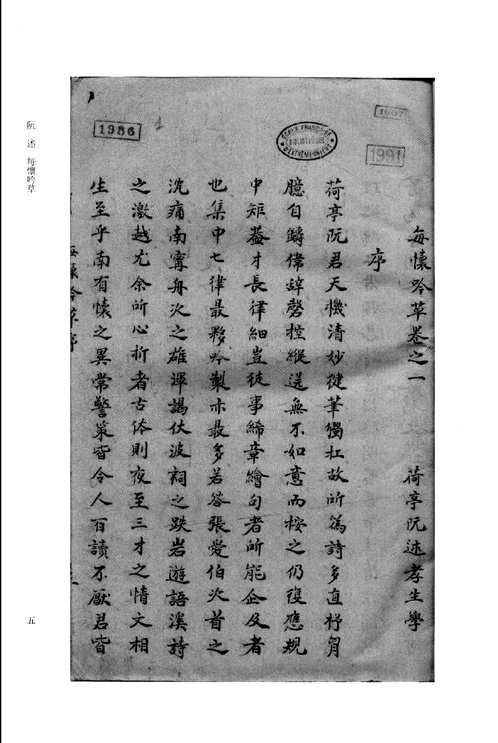 每懷吟草卷之一　荷亭阮述孝生學
序
荷亭阮君天機清妙健筆獨扛故所為詩多直杼胸
臆自鑄偉辞磬控縱送無不如意而按之仍復應規
中矩蓋才長律細豈徒事絺章繪句者所能企及者
也集中七律最夥吟製亦最多若答張愛伯次首之
沈痛南寧舟次之雄渾謁伏波祠之跌岩遊語溪詩
之激越尤余所心折者古体則夜至三才之情文相
生至乎南有懷之異常警策皆令人百讀不厭君皆
每懷吟草序
1986
1991
阮述　每懷吟草
五